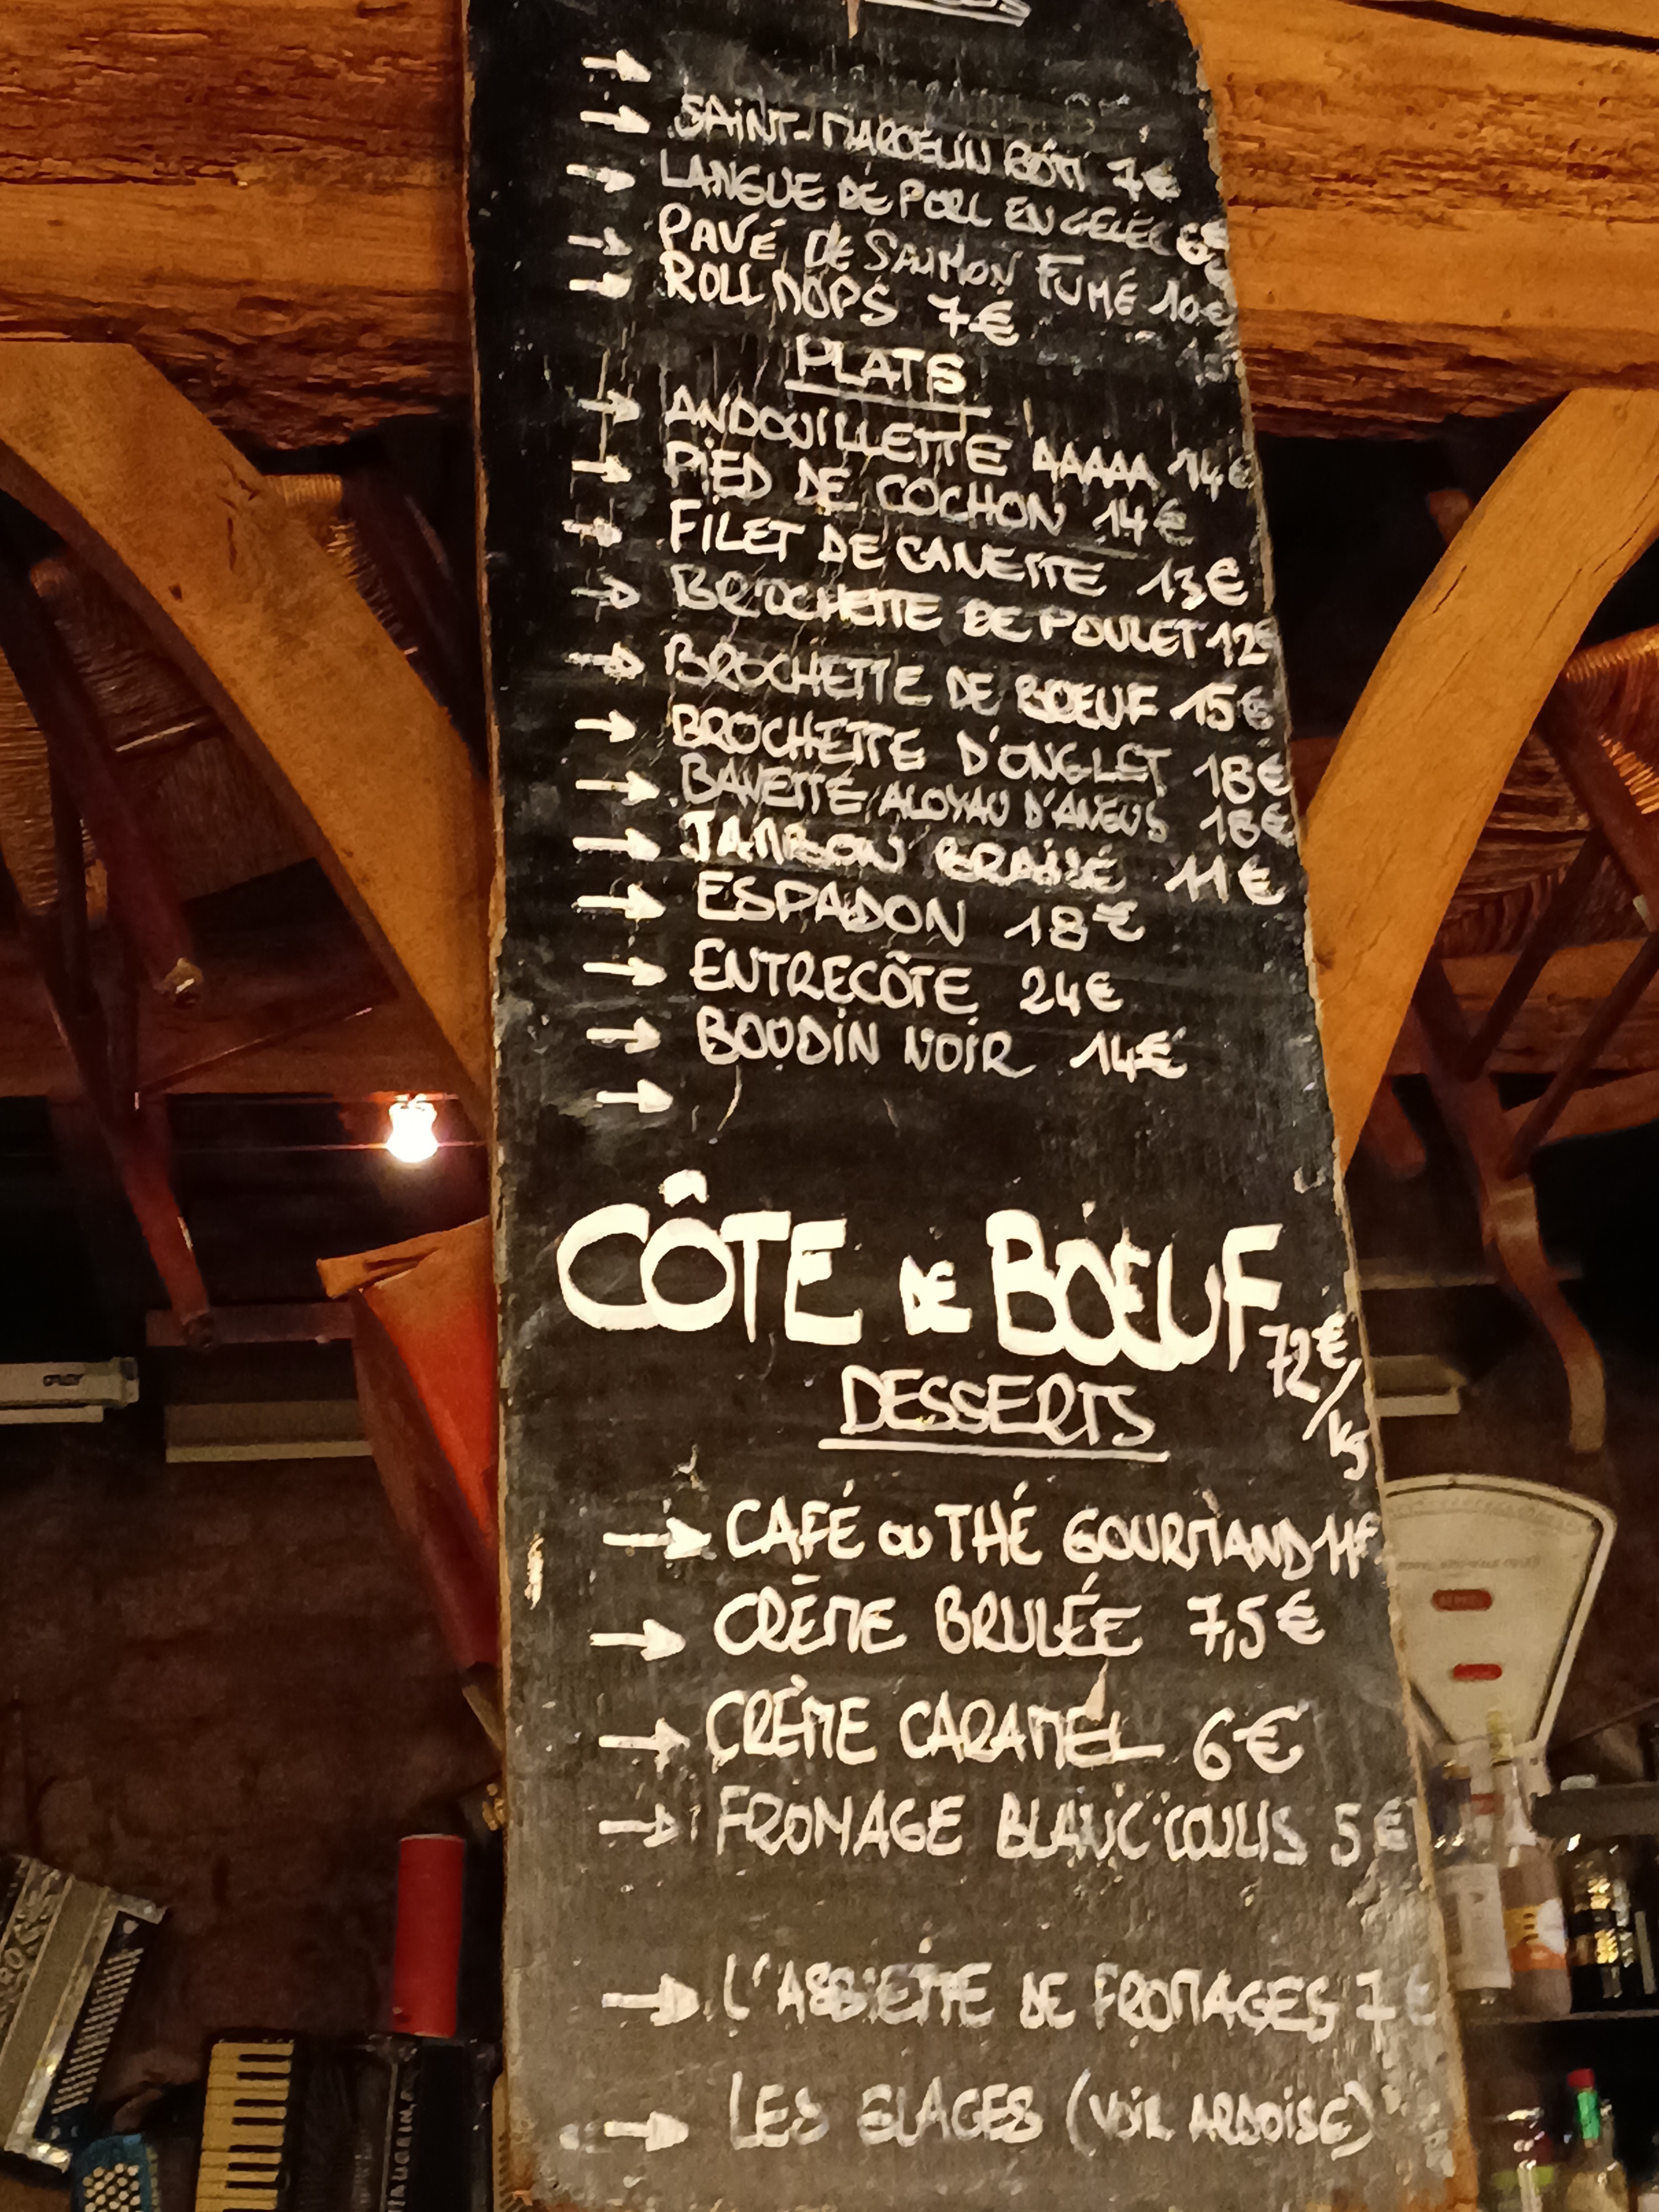 SAINT-MARCELIN RÔTI 7€
LANGUE DE PORC EN GELÉE 6€
PAVÉ DE SAUMON FUMÉ 10€
ROLL MOPS 7€
PLATS
ANDOUILLETTE AAAAA 14€
PIED DE COCHON 14€
FILET DE CANETTE 13€
BROCHETTE DE POULET 12€
BROCHETTE DE BOEUF 15€
BROCHETTE D'ONGLET 18€
BAVETTE ALOYAU D'ANGUS 18€
JAMBON BRAISÉ 11€
ESPADON 18€
ENTRECÔTE 24€
BOUDIN NOIR 14€
CÔTE DE BOEUF 72€/kg
DESSERTS
CAFÉ OU THÉ GOURMAND 11€
CRÈME BRULÉE 7,5€
CRÈME CARAMEL 6€
FROMAGE BLANC COULIS 5€
L'ASSIETTE DE FROMAGES 7€
LES GLACES (VOIR ARDOISE)